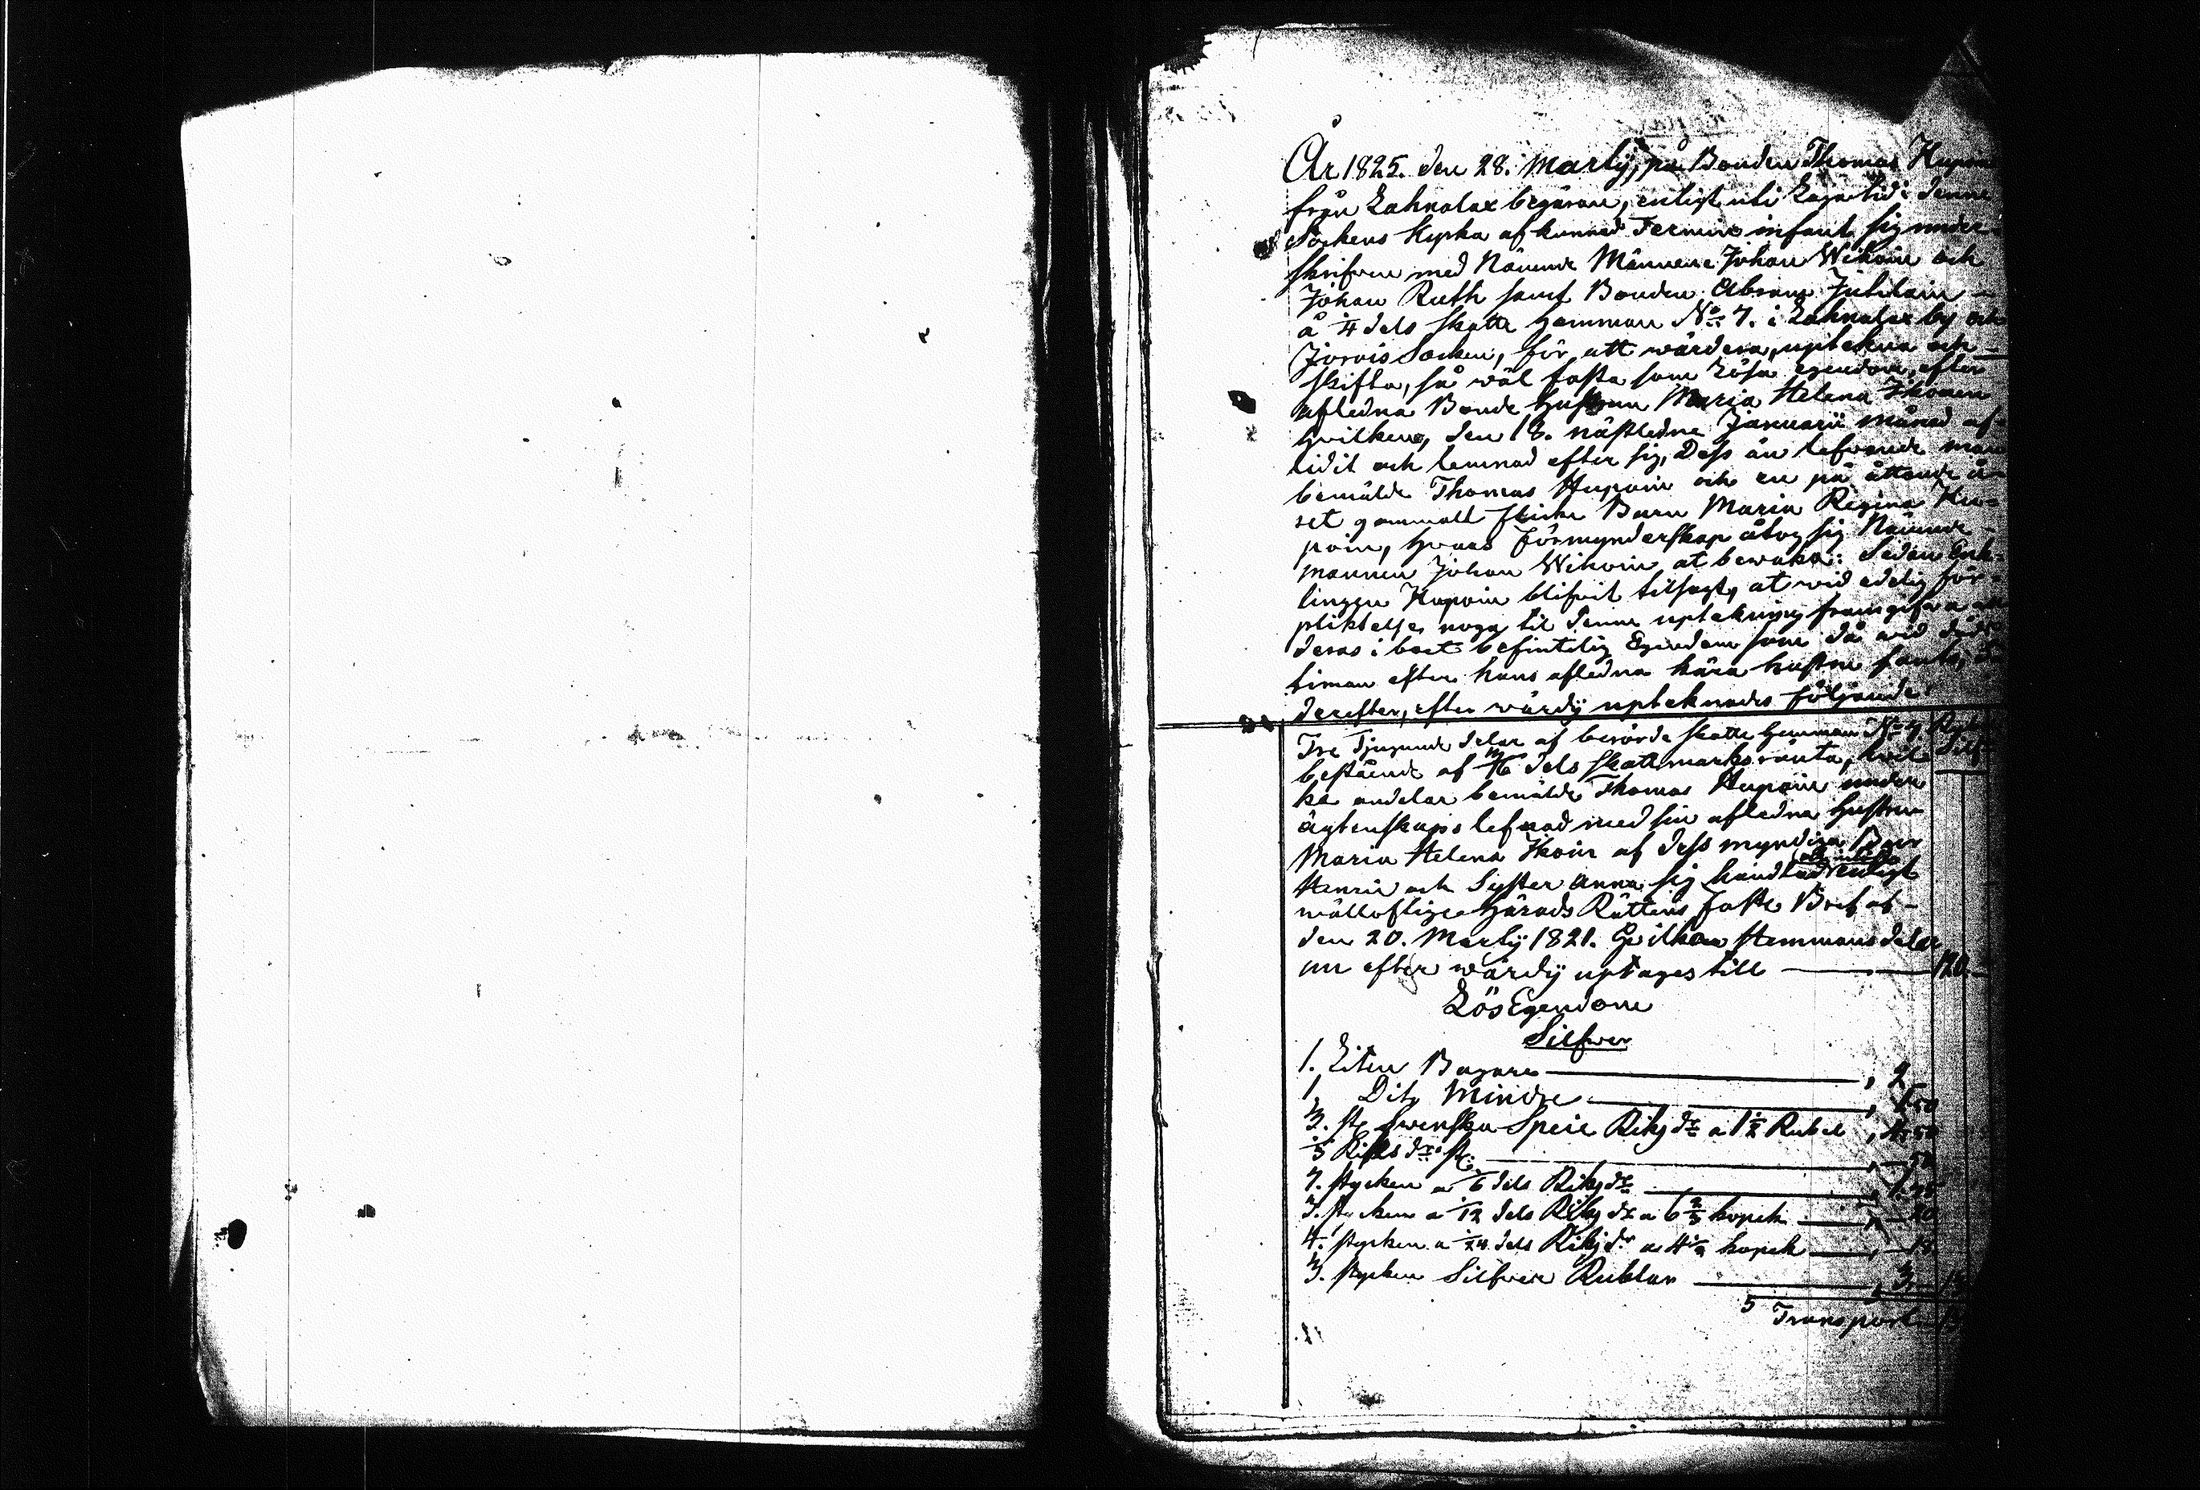 År 1825. den 28. Martij, på Bonden Thomas Hupoin
från Lahnalax begäran, enligt uti Laga tid i denne
Sockens Kyrka afkunnad Termin infant sig under-
skrifven med Nämnde Männerne Johan Wikoin och
Johan Ruth samt Bonden Abram Julilain
å 1/4 dels skatte Hemman No 7. i Lahnalax by och
Jorois Socken, för att wärdera, uptekna och
skifta, så wäl fasta som Lösa egendom, efter
aflednа Bonde Hustrun Maria Helena Ikonen
Hvilken, den 18. nästledne Januarii månad af-
lidit och lemnad efter sig, Dess än lefvande man
bemälde Thomas Hupoin och en på åttonde å-
ret gammalt flicke Barn Maria Regina Hu-
poin, hvars Förmynderskap åtog sig Nämnde
mannen Johan Wikoin at bewaka: Sedan Enk-
lingen Hupoin blifvit tilsagt, at wid edelig för-
pliktelse noga til denne uptekning framgifva all
deras i boet befintelig Egendom som då wid döds
timan efter hans afledna kära hustru fants,
derefter, efter wärdij upteknades följande
Tre Tjugunde delar af berörde skatte Hemman No 7
bestående af dels skattmarks ränta, hvil-
ka andelar bemälde Thomas Hupoin under
ägtenskaps lefnad med sin afledna Hustru
Maria Helena Ikoin af dess myndiga Bror
Henric och Syster Anna sig handlad enligt
wällofliga Härads Rättens Faste Bref af
den 20. Martij 1821. Hvilken Hemmans delar
nu efter wärdij uptages till 120
Lös Egendom
Silfwer
1. Liten Bagare 2
1. Dito Mindre 1 50
3. st Swenska Specie Riksdr a 1 1/2 Rubel 4 50
1/3 Riksdr st. 50
7. stycken a 1/6 dels Riksdr
3. stycken a 1/12 dels Riksdr a 6 2/3 kopek 20
4. stycken a 1/24 dels Riksdr a 4 1/2 kopek 18
3. stycken Silfwer Rublar 3
Transport